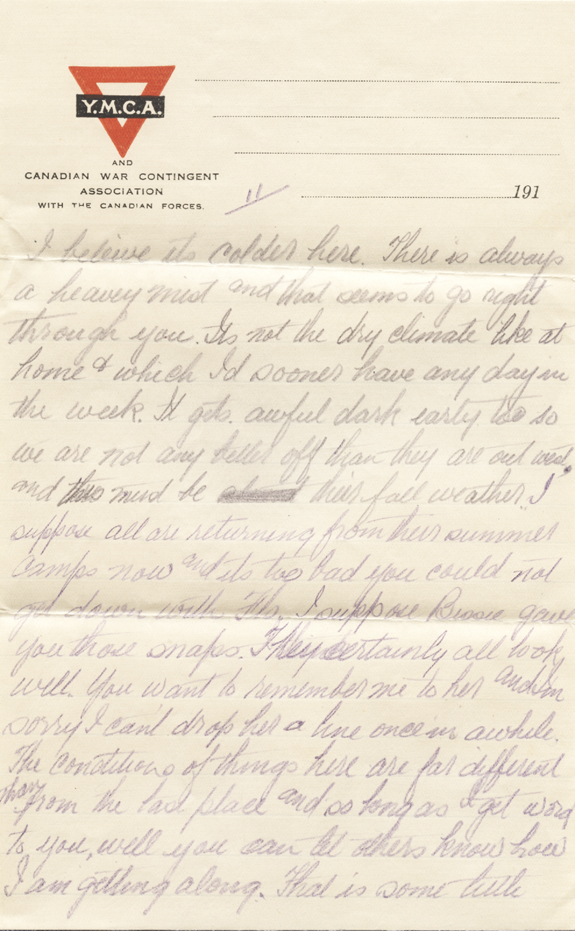 Y.M.C.A.
AND
CANADIAN WAR CONTINGENT
ASSOCIATION
WITH THE CANADIAN FORCES.
11
191
I beleive its colder here. There is always
a heavey mist and that seems to go right
through you. Its not the dry climate like at
home & which I'd sooner have any day in
the week. It gets awful dark early too so
we are not any better off than they are out west
and this must be their fall weather. I
suppose all are returning from their summer
camps now and its too bad you could not
get down with Flo. I suppose Bessie gave
you those snaps. They certainly all look
well. You want to remember me to her and I'm
sorry I can't drop her a line once in awhile.
The conditions of things here are far different
than from the last place and so long as I get word
to you, well you can let others know how
I am getting along. That is some little